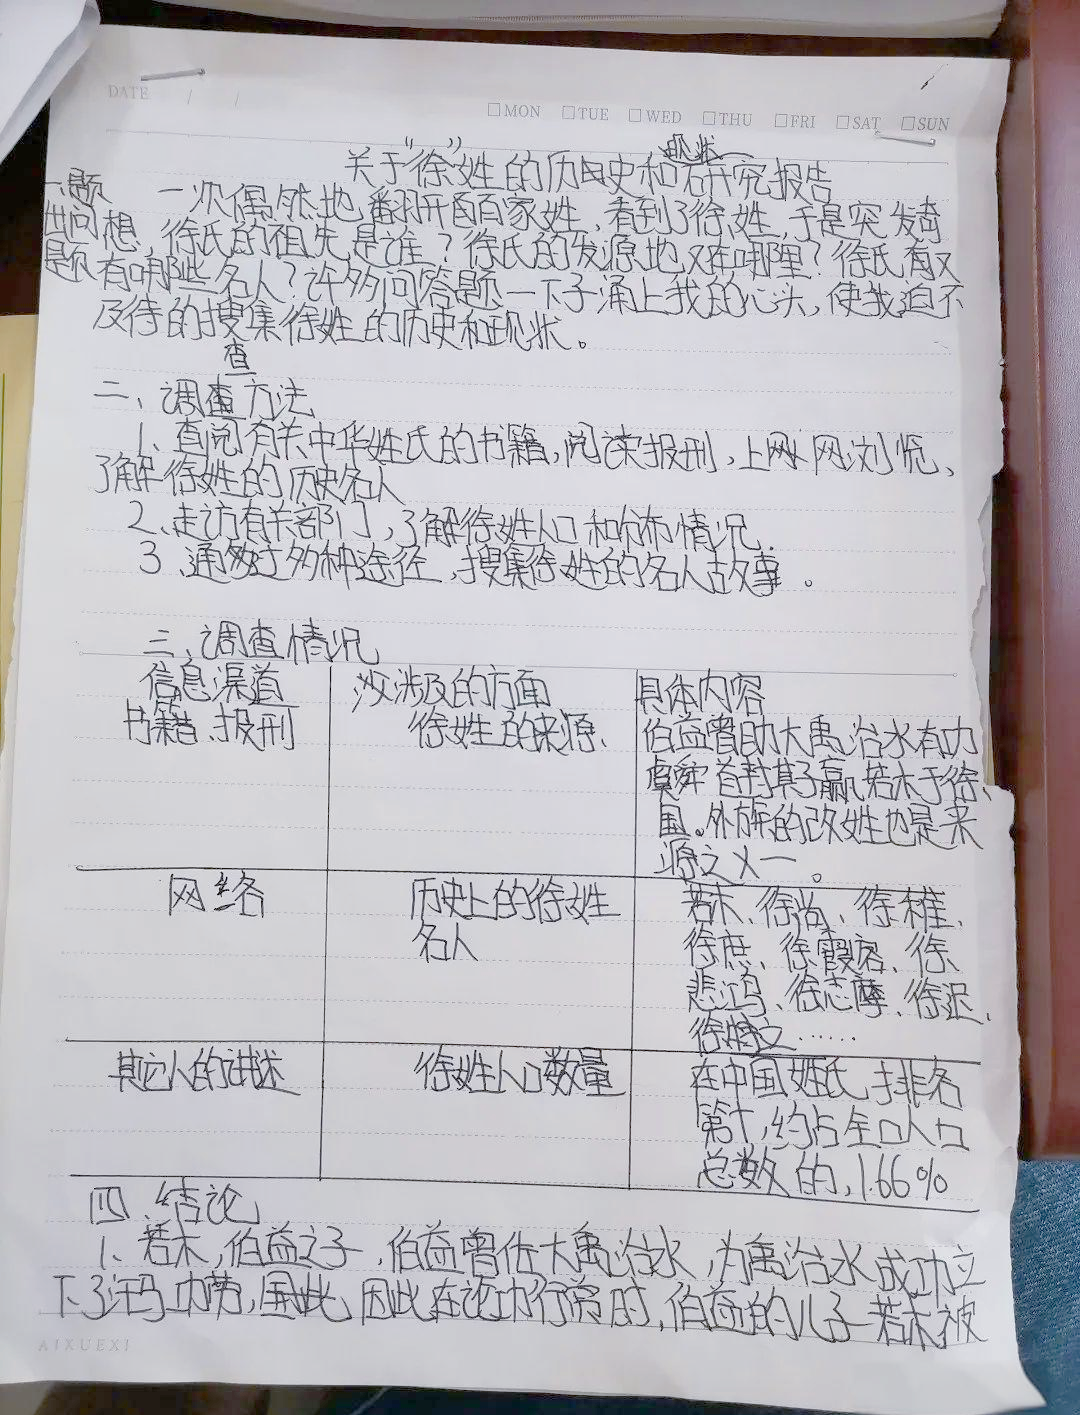 DATE / /
□MON □TUE □WED □THU □FRI □SAT □SUN
现状
关于“徐”姓的历史和研究报告
一、题
出问
题
一次偶然地翻开百家姓，看到了徐姓，于是突发奇
想，徐氏的祖先是谁？徐氏的发源地又在哪里？徐氏有又
有哪些名人？许多问答题一下子涌上我的心头，使我迫不
及待的搜集徐姓的历史和现状。
查
二、调查方法
1、查阅有关中华姓氏的书籍，阅读报刊，上网网浏览、
了解徐姓的历史名人
2、走访有关部门，了解徐姓人口和分布情况.
3、通过多种途径，搜集徐姓的名人故事。
三、调查情况
信息渠道 涉及的方面 具体内容
书籍、报刊 徐姓的来源、 伯益曾助大禹治水有功
虞舜首封其子嬴若木于徐、
国。外族的改姓也是来
源之一。
网络 历史上的徐姓 若木、徐尚、徐稚、
名人 徐庶、徐霞客、徐
悲鸿、徐志摩、徐迟、
徐……
其它人的讲述 徐姓人口数量 在中国姓氏排名
第十，约占全口人口
总数的，1.66%
四、结论
1、若木，伯益之子，伯益曾佐大禹治水，为禹治水成功立
下了汗马功劳，因此，因此在论功行赏时，伯益的儿子若木被
AIXUEXI